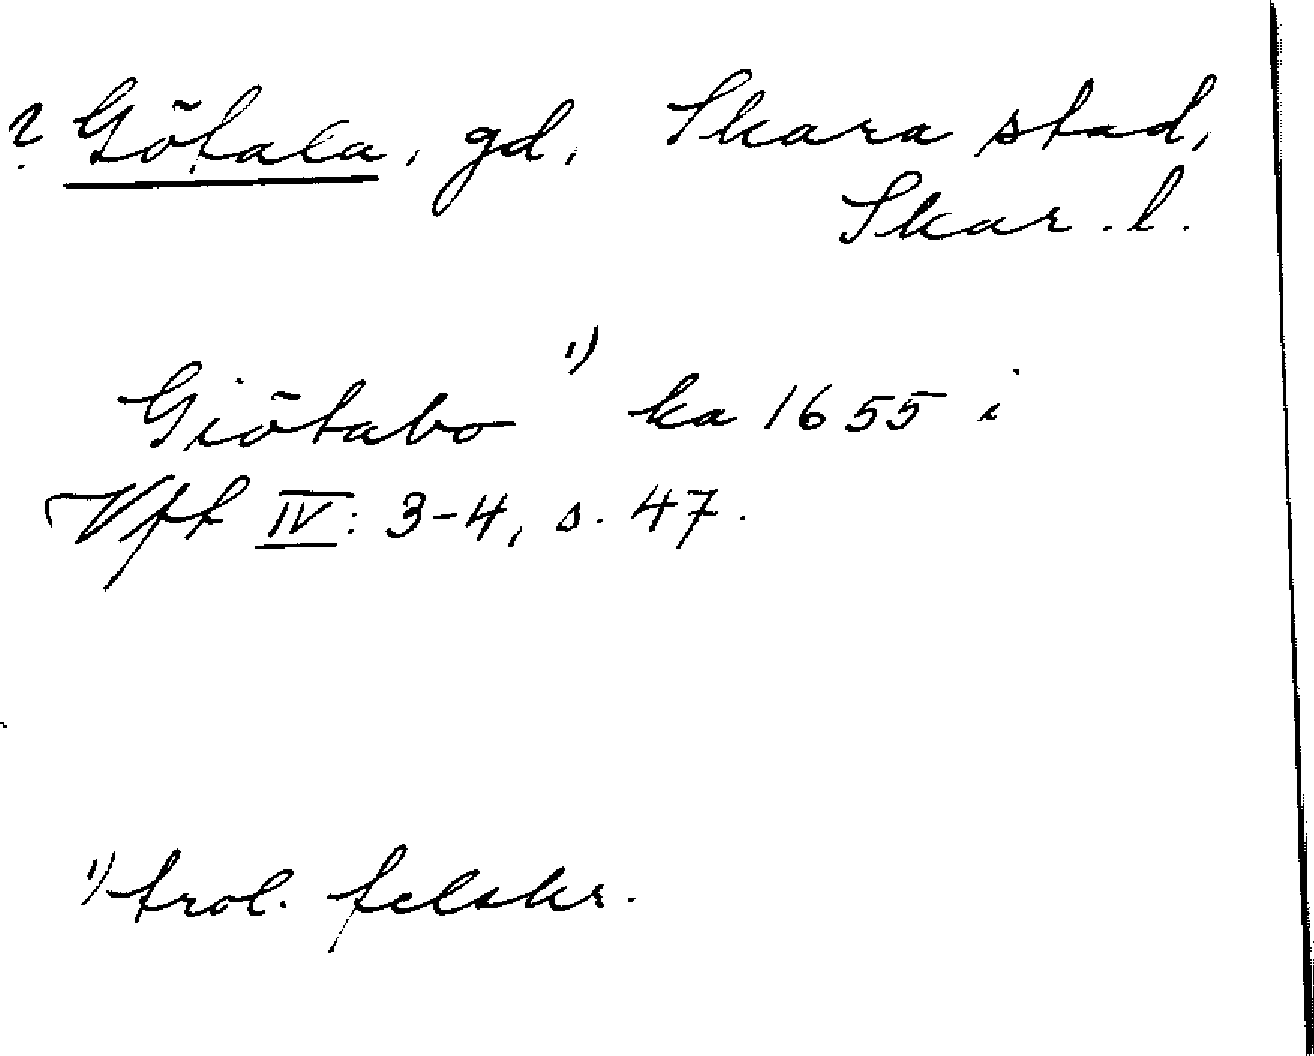 ? Götala, gd, Skara stad,
Skar. l.
Giötabo ¹) ka 1655 i
Vff IV: 3-4, s. 47.
¹) trol. felskr.